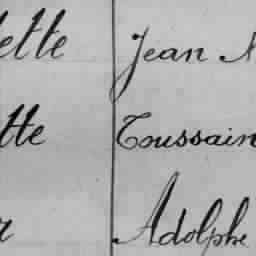 ette Jean
tte Toussain
Adolphe